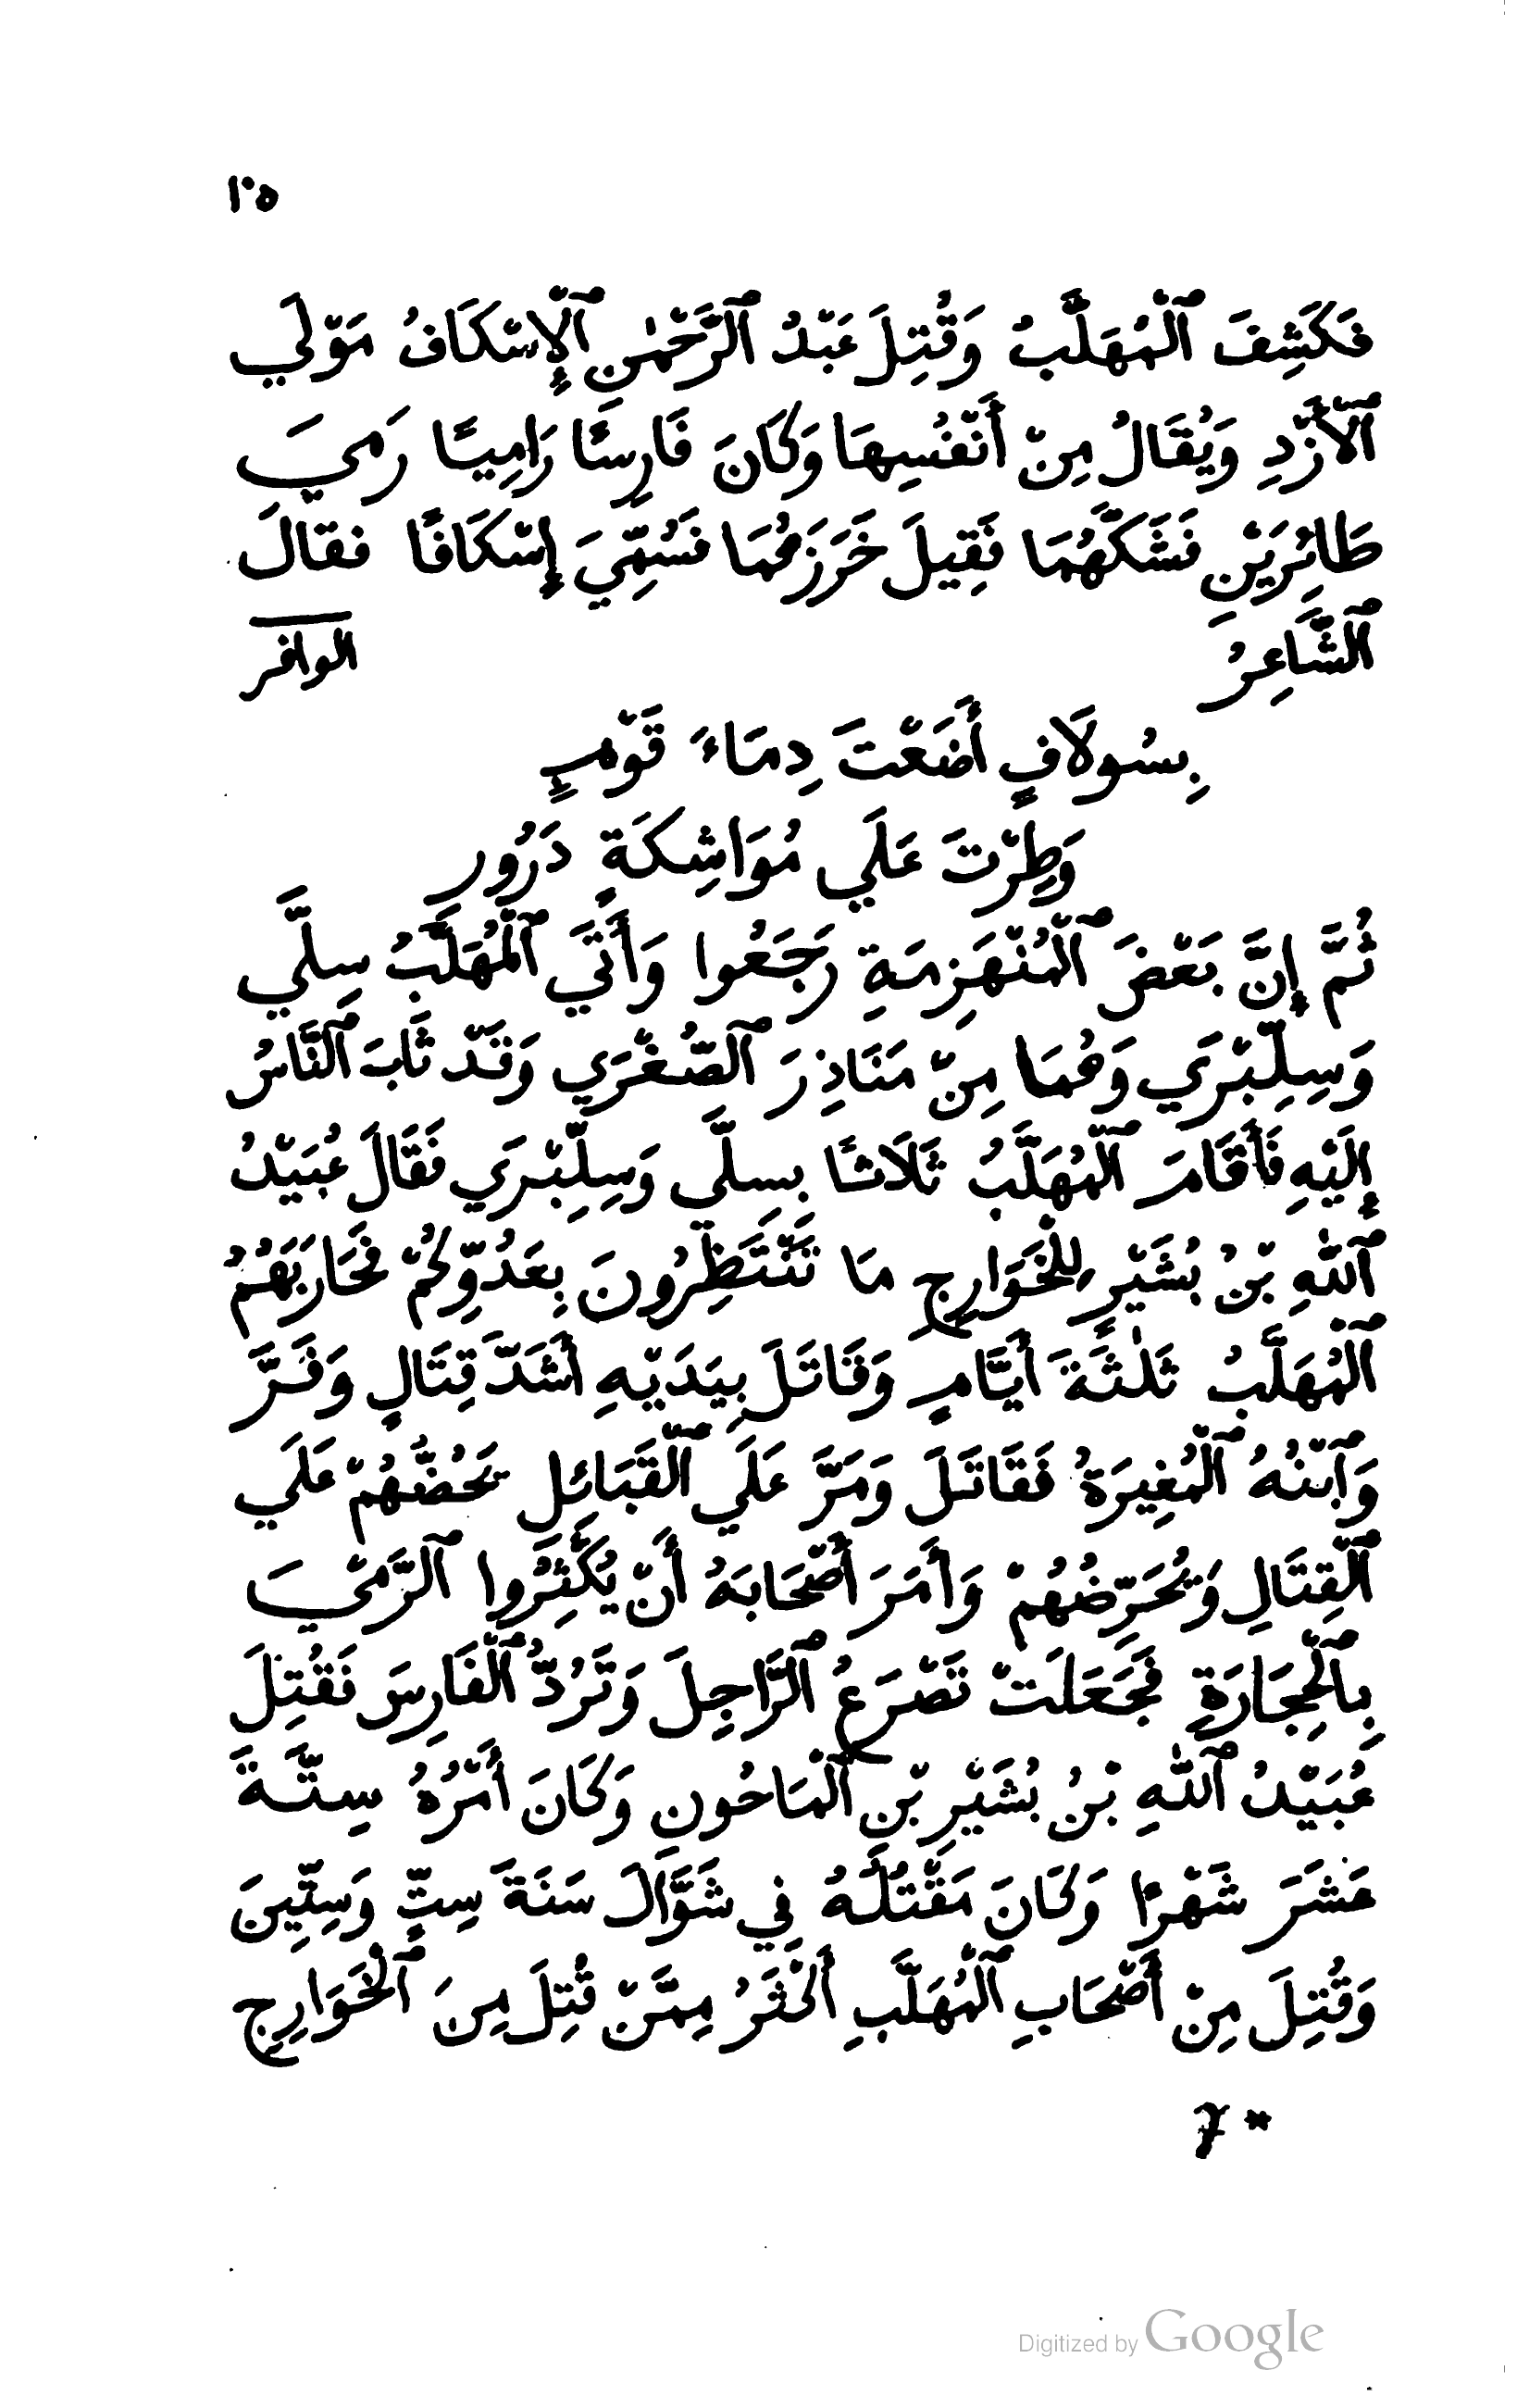 ١٠٥
فَكَشِفَ ٱلْمُهَلَّبُ وَقُتِلَ عَبْدُ ٱلرَّحْمٰنِ ٱلْإِسْكَافُ مَوْلَي
ٱلْأَزْدِ وَيُقَالُ مِنْ أَنْفُسِهَا وَكَانَ فَارِسًا رَامِيًا رَمَي
طَائِرَيْنِ فَشَكَّهُمَا فَقِيلَ خَرَزَهُمَا فَسُمِّيَ إِسْكَافًا فقالَ
ٱلشَّاعِرُ الوافر
بِسُولَافٍ أَضَعْتَ دِمَاءَ قَوْمٍ
وَطِرْتَ عَلَي مُوَاشِكَةٍ دَرُورِ
ثُمَّ إِنَّ بَعْضَ ٱلْمُنْهَزِمَةِ رَجَعُوا وَأَتَي ٱلْمُهَلَّبُ سِلَّي
وَسِلِّبْرَي وَهُمَا مِنْ مَنَاذِرَ ٱلصُّغْرَي وَقَدْ ثَابَ ٱلنَّاسُ
إِلَيْهِ فَأَقَامَ ٱلْمُهَلَّبُ ثَلَاثًا بِسِلَّي وَسِلِّبْرَي فَقَالَ عُبَيْدُ
ٱللّٰهِ بْنُ بُشَيْرٍ لِلْخَوَارِجِ مَا تَنْتَظِرُونَ بِعَدُوِّكُمْ فَحَارَبَهُمُ
ٱلْمُهَلَّبُ ثَلٰثَةَ أَيَّامٍ وَقَاتَلَ بِيَدَيْهِ أَشَدَّ قِتَالٍ وَفَرَّ
وَٱبْنُهُ ٱلْمُغِيرَةُ فَقَاتَلَ وَمَرَّ عَلَي ٱلْقَبَائِلِ يَحُضُّهُمْ عَلَي
ٱلْقِتَالِ وَيُحَرِّضُهُمْ وَأَمَرَ أَصْحَابَهُ أَنْ يُكْثِرُوا ٱلرَّمْيَ
بِٱلْحِجَارَةِ فَجَعَلَتْ تَصْرَعُ ٱلرَّاجِلَ وَتَرُدُّ ٱلْفَارِسَ فَقُتِلَ
عُبَيْدُ ٱللّٰهِ بْنُ بُشَيْرِ بْنِ ٱلْمَاحُونِ وَكَانَ أَمْرُهُ سِتَّةَ
عَشَرَ شَهْرًا وَكَانَ مَقْتَلُهُ فِي شَوَّالَ سَنَةَ سِتٍّ وَسِتِّينَ
وَقُتِلَ مِنْ أَصْحَابِ ٱلْمُهَلَّبِ أَكْثَرُ مِمَّنْ قُتِلَ مِنَ ٱلْخَوَارِجِ
7*
Digitized by Google